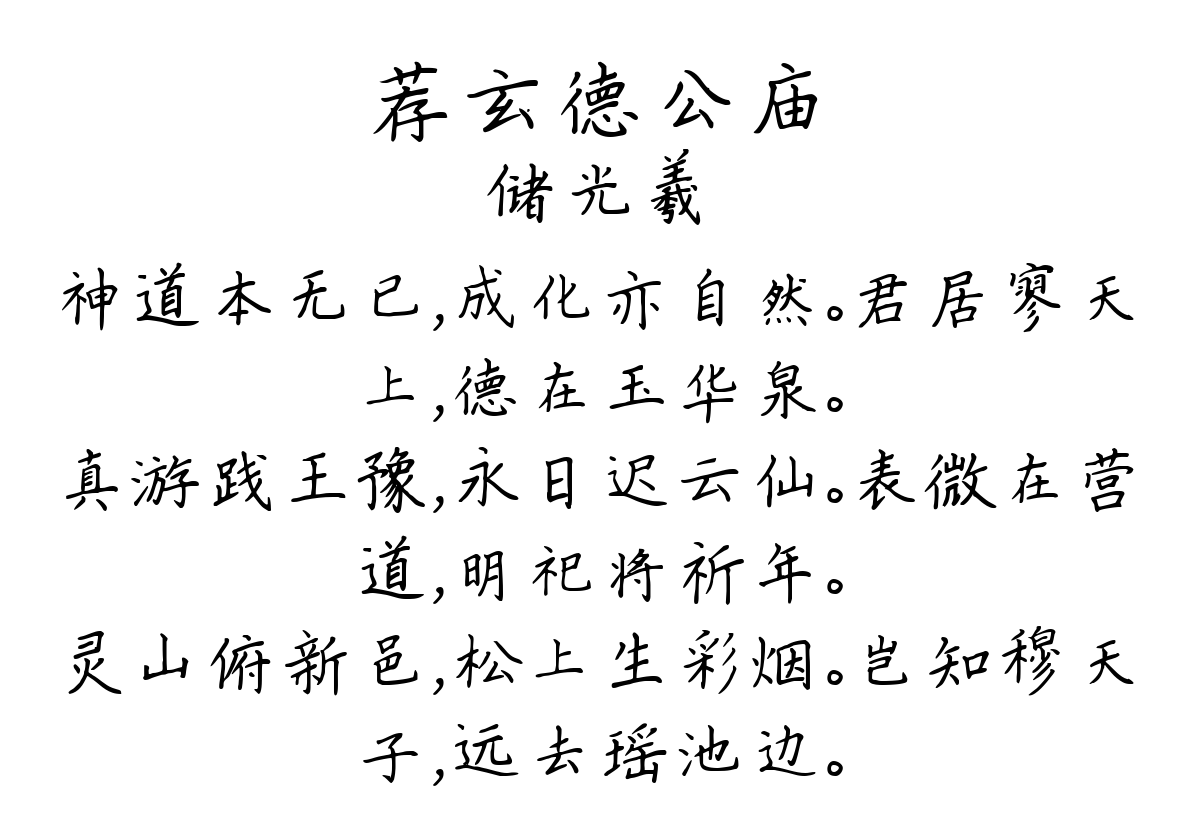 荐玄德公庙
储光羲
神道本无已,成化亦自然。君居寥天
上,德在玉华泉。
真游践王豫,永日迟云仙。表微在营
道,明祀将祈年。
灵山俯新邑,松上生彩烟。岂知穆天
子,远去瑶池边。